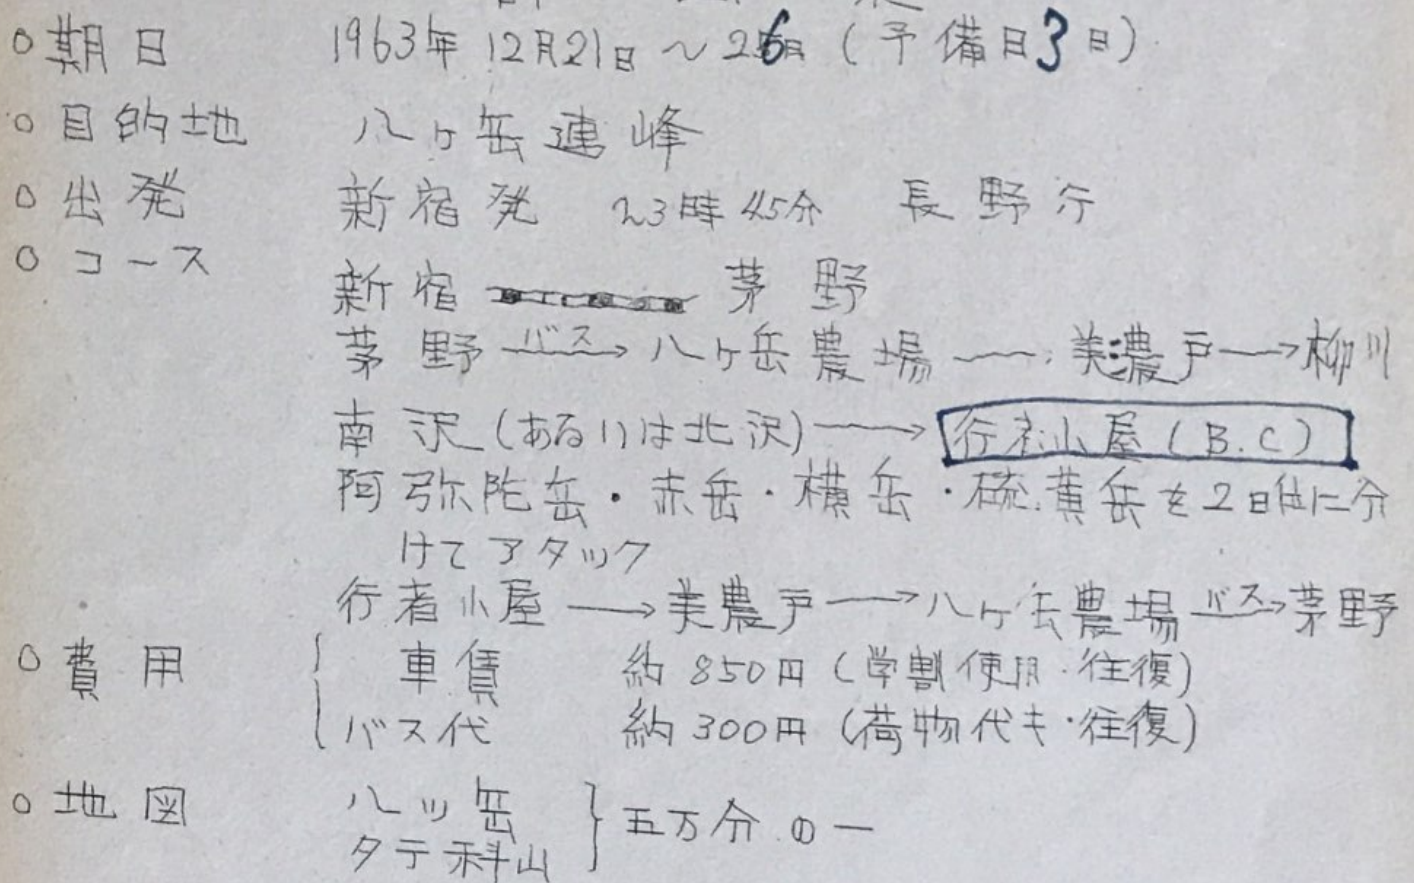 ○期日 1963年12月21日～26日(予備日3日)
○目的地 八ヶ岳連峰
○出発 新宿発 23時45分 長野行
○コース
新宿 茅野
茅野 バス→ 八ヶ岳農場 ―― 美濃戸 → 柳川
南沢(あるいは北沢) → 行者小屋(B.C)
阿弥陀岳・赤岳・横岳・硫黄岳を2日位に分
けてアタック
行者小屋 → 美農戸 → 八ヶ岳農場 バス→ 茅野
○費用 車賃 約850円(学割使用・往復)
バス代 約300円(荷物代キ・往復)
○地図 八ッ岳
タテ科山 } 五万分の一